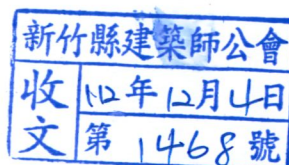 新竹縣建築師公會
收文
112年12月4日
第1468號